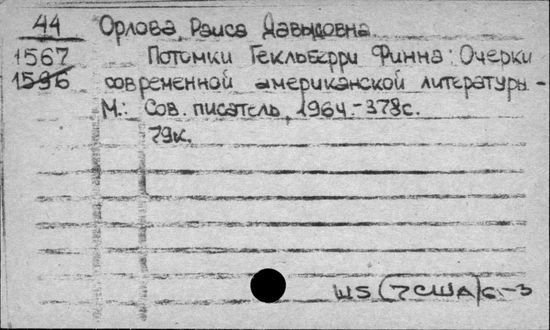 44 Орлова Раиса Давыдовна
1567 Потомки Гекльберри Финна: Очерки
1596 современной американской литературы.-
М.: Сов. писатель, 1964.-378с.
79к.
Ш5(7США)6-3